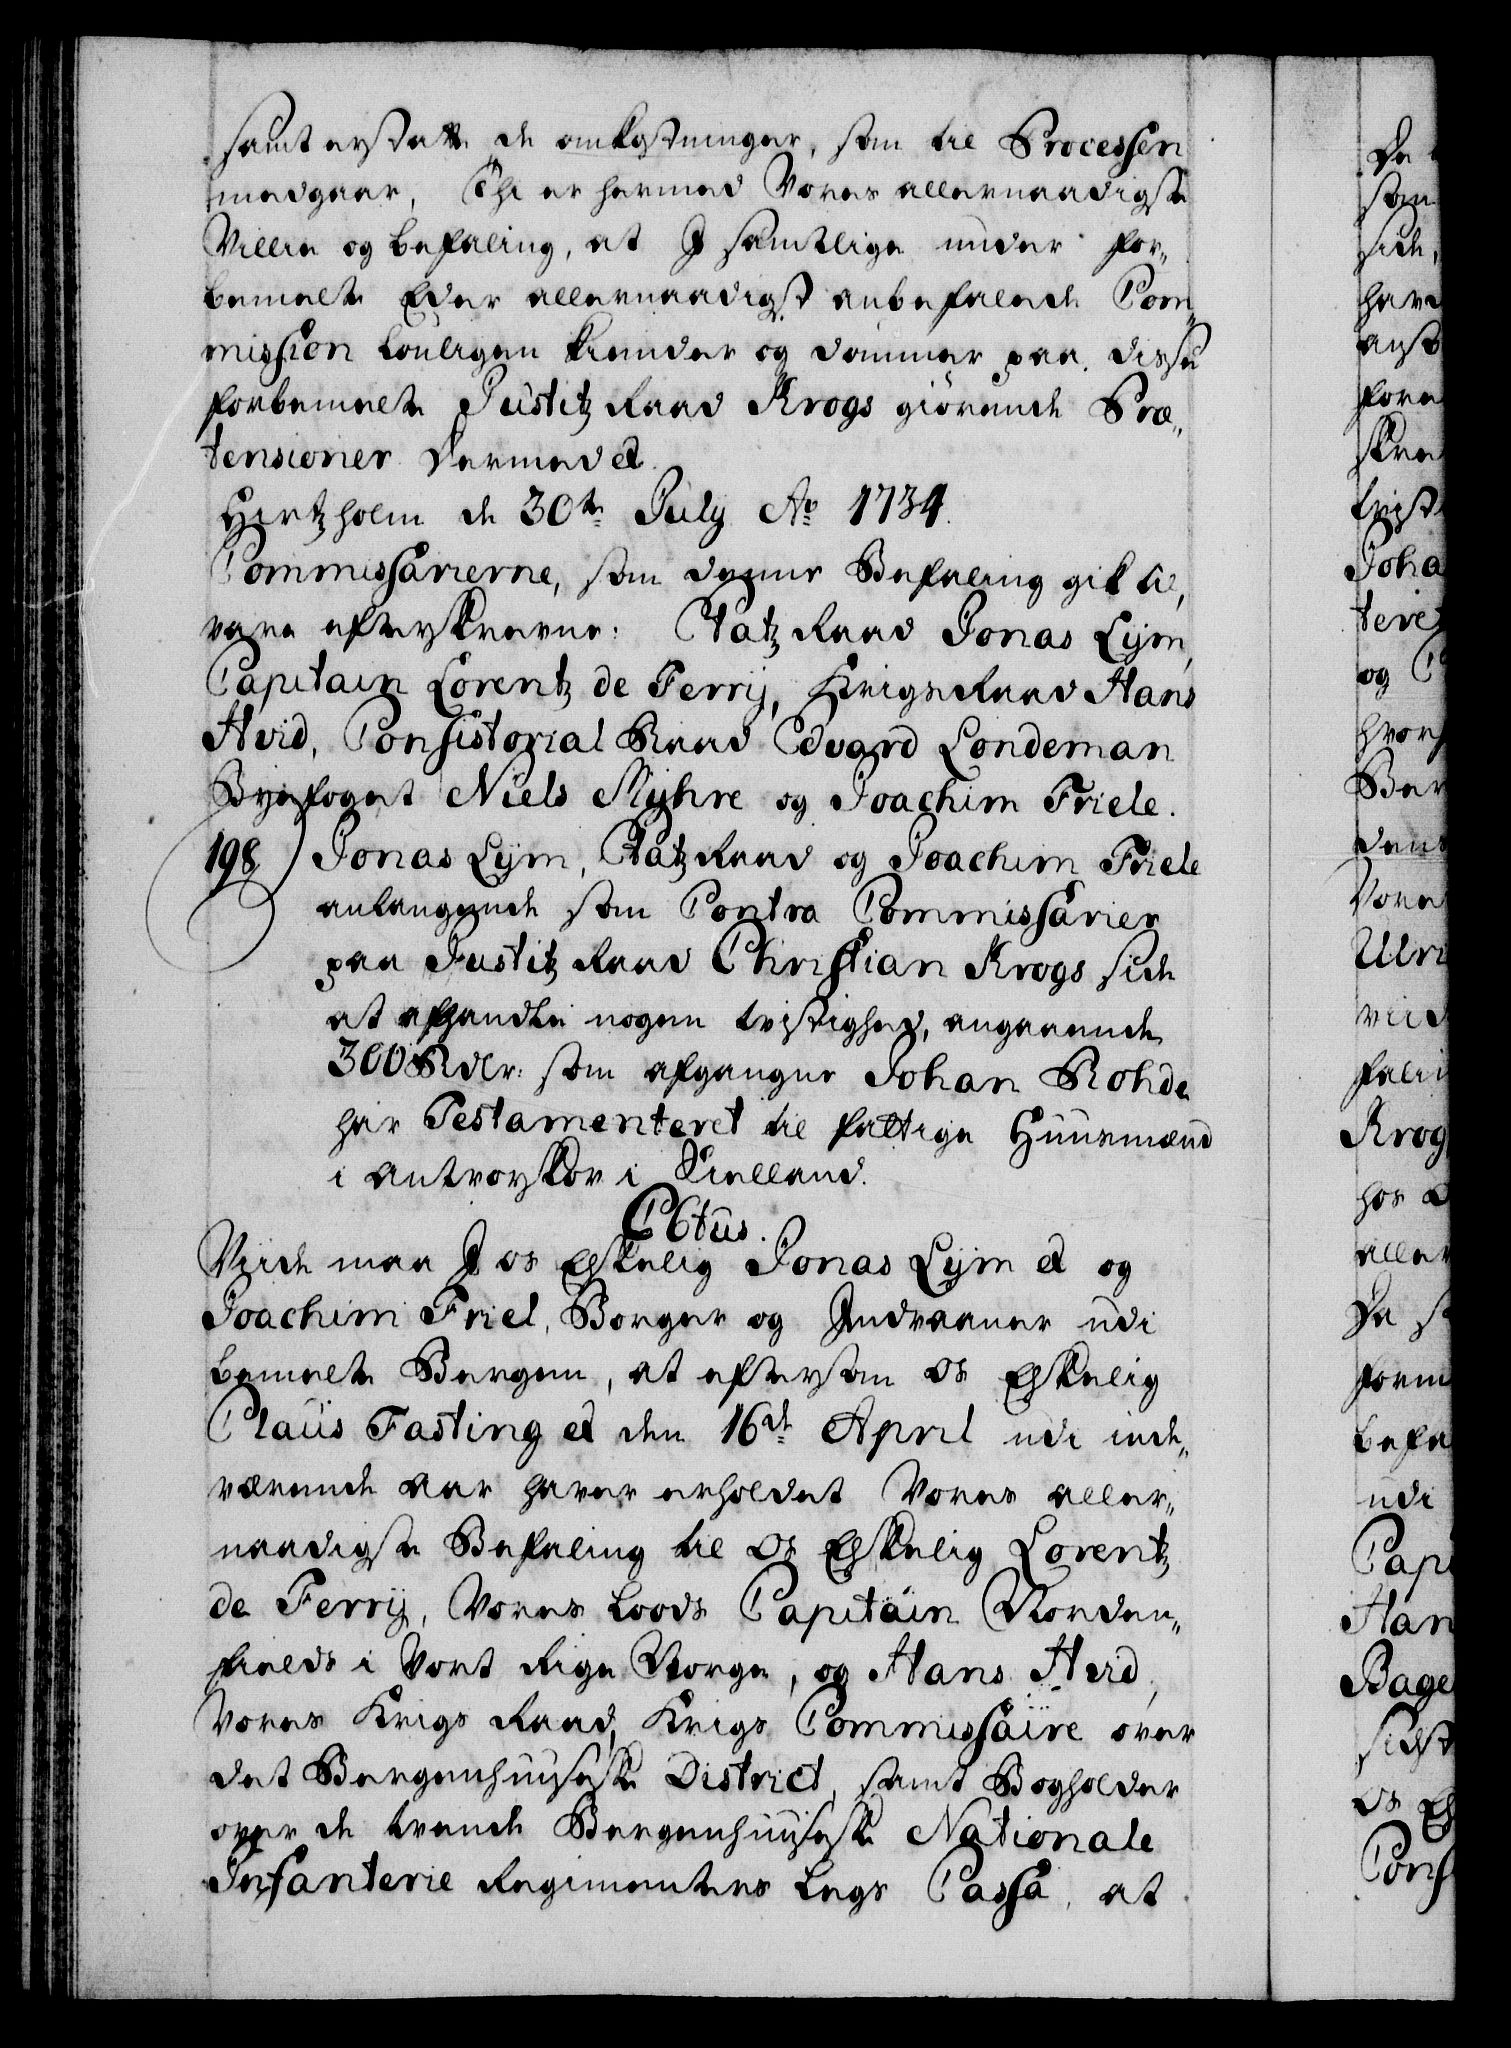 samt erstatte de omkostninger, som til Processen
medgaar, Thi er hermed Vores allernaadigste
Villie og befaling, at I samtlige under for„
bemelte Eder allernaadigst anbefalede Com„
mission louligen kiender og dømmer paa disse
forbemelte Justitz Raad Krogs giørende Præ„
tensioner. Dermed etc.
Hirtzholm de 30te July Ao 1734.
Commissarierne, som denne Befaling gik til,
vare efterskrevne: Etatz Raad Jonas Lijm,
Capitain Lorentz de Ferrij, Krigs Raad Hans
Hvid, Consistorial Raad Edvard Londeman
Byefoget Niels Myhre og Joachim Friele.
198) Jonas Lijm, Etatz Raad og Joachim Friele
anlangende som Contra Commissarier
paa Justitz Raad Christian Krogs side
at afhandle nogen tvistighed, angaaende
300 Rdlr: som afgangne Johan Rohde
har Testamenteret til fattige Huusmænd
i Antvorskov i Siælland.
C 6tus.
Viide maa I os Elskelig Jonas Lijm etc. og
Joachim Friel, Borger og Indvaaner udi
bemelte Bergen, at eftersom os Elskelig
Claus Fasting etc. den 16de April udi inde„
værende Aar haver erholdet Vores aller„
naadigste Befaling til Os Elskelig Lorentz
de Ferrij, Vores Loods Capitain Norden„
fields i Vort Rige Norge, og Hans Hvid,
Vores Krigs Raad, Krigs Commissaire over
det Bergenhuusiske District, samt Bogholder
over de tvende Bergenhuusiske Nationale
Infanterie Regimenters Legs Cassa, at